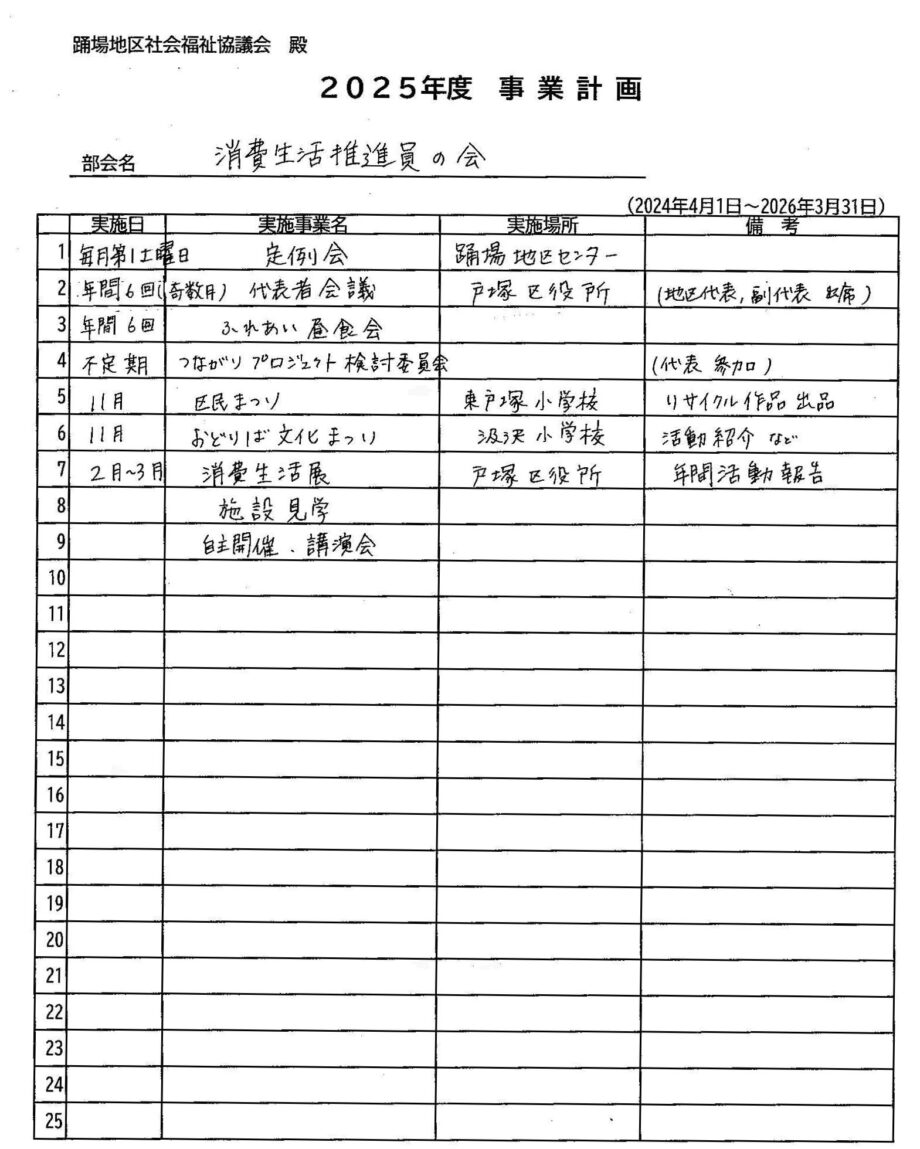 踊場地区社会福祉協議会 殿
2025年度 事業計画
部会名 消費生活推進員の会
(2024年4月1日~2026年3月31日)
実施日 実施事業名 実施場所 備考
1 毎月第1土曜日 定例会 踊場地区センター
2 年間6回(奇数月) 代表者会議 戸塚区役所 (地区代表,副代表 出席)
3 年間6回 ふれあい昼食会
4 不定期 つながりプロジェクト検討委員会 (代表 参加)
5 11月 区民まつり 東戸塚小学校 リサイクル作品出品
6 11月 おどりば文化まつり 汲沢小学校 活動紹介など
7 2月~3月 消費生活展 戸塚区役所 年間活動報告
8 施設見学
9 自主開催、講演会
10
11
12
13
14
15
16
17
18
19
20
21
22
23
24
25